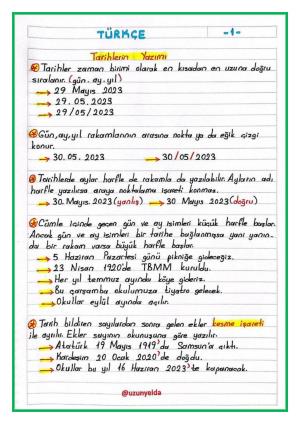 TÜRKÇE
-1-
Tarihlerin Yazımı
Tarihler zaman birimi olarak en kısadan en uzuna doğru
sıralanır. (gün. ay. yıl)
→ 29 Mayıs 2023
→ 29. 05. 2023
→ 29/05/2023
Gün, ay, yıl rakamlarının arasına nokta ya da eğik çizgi
konur.
→ 30. 05. 2023 → 30/05/2023
Tarihlerde aylar harfle de rakamla da yazılabilir. Ayların adı
harfle yazılırsa araya noktalama işareti konmaz.
→ 30. Mayıs. 2023 (yanlış) → 30 Mayıs 2023 (doğru)
Cümle içinde geçen gün ve ay isimleri küçük harfle başlar.
Ancak gün ve ay isimleri bir tarihe bağlanmışsa yani yanın-
da bir rakam varsa büyük harfle başlar.
→ 5 Haziran Pazartesi günü pikniğe gideceğiz.
→ 23 Nisan 1920'de TBMM kuruldu.
→ Her yıl temmuz ayında köye gideriz.
→ Bu çarşamba okulumuza tiyatro gelecek.
→ Okullar eylül ayında açılır.
Tarih bildiren sayılardan sonra gelen ekler kesme işareti
ile ayrılır. Ekler sayının okunuşuna göre yazılır.
→ Atatürk 19 Mayıs 1919'da Samsun'a çıktı.
→ Kardeşim 20 Ocak 2020'de doğdu.
→ Okullar bu yıl 16 Haziran 2023'te kapanacak.
@uzunyelda